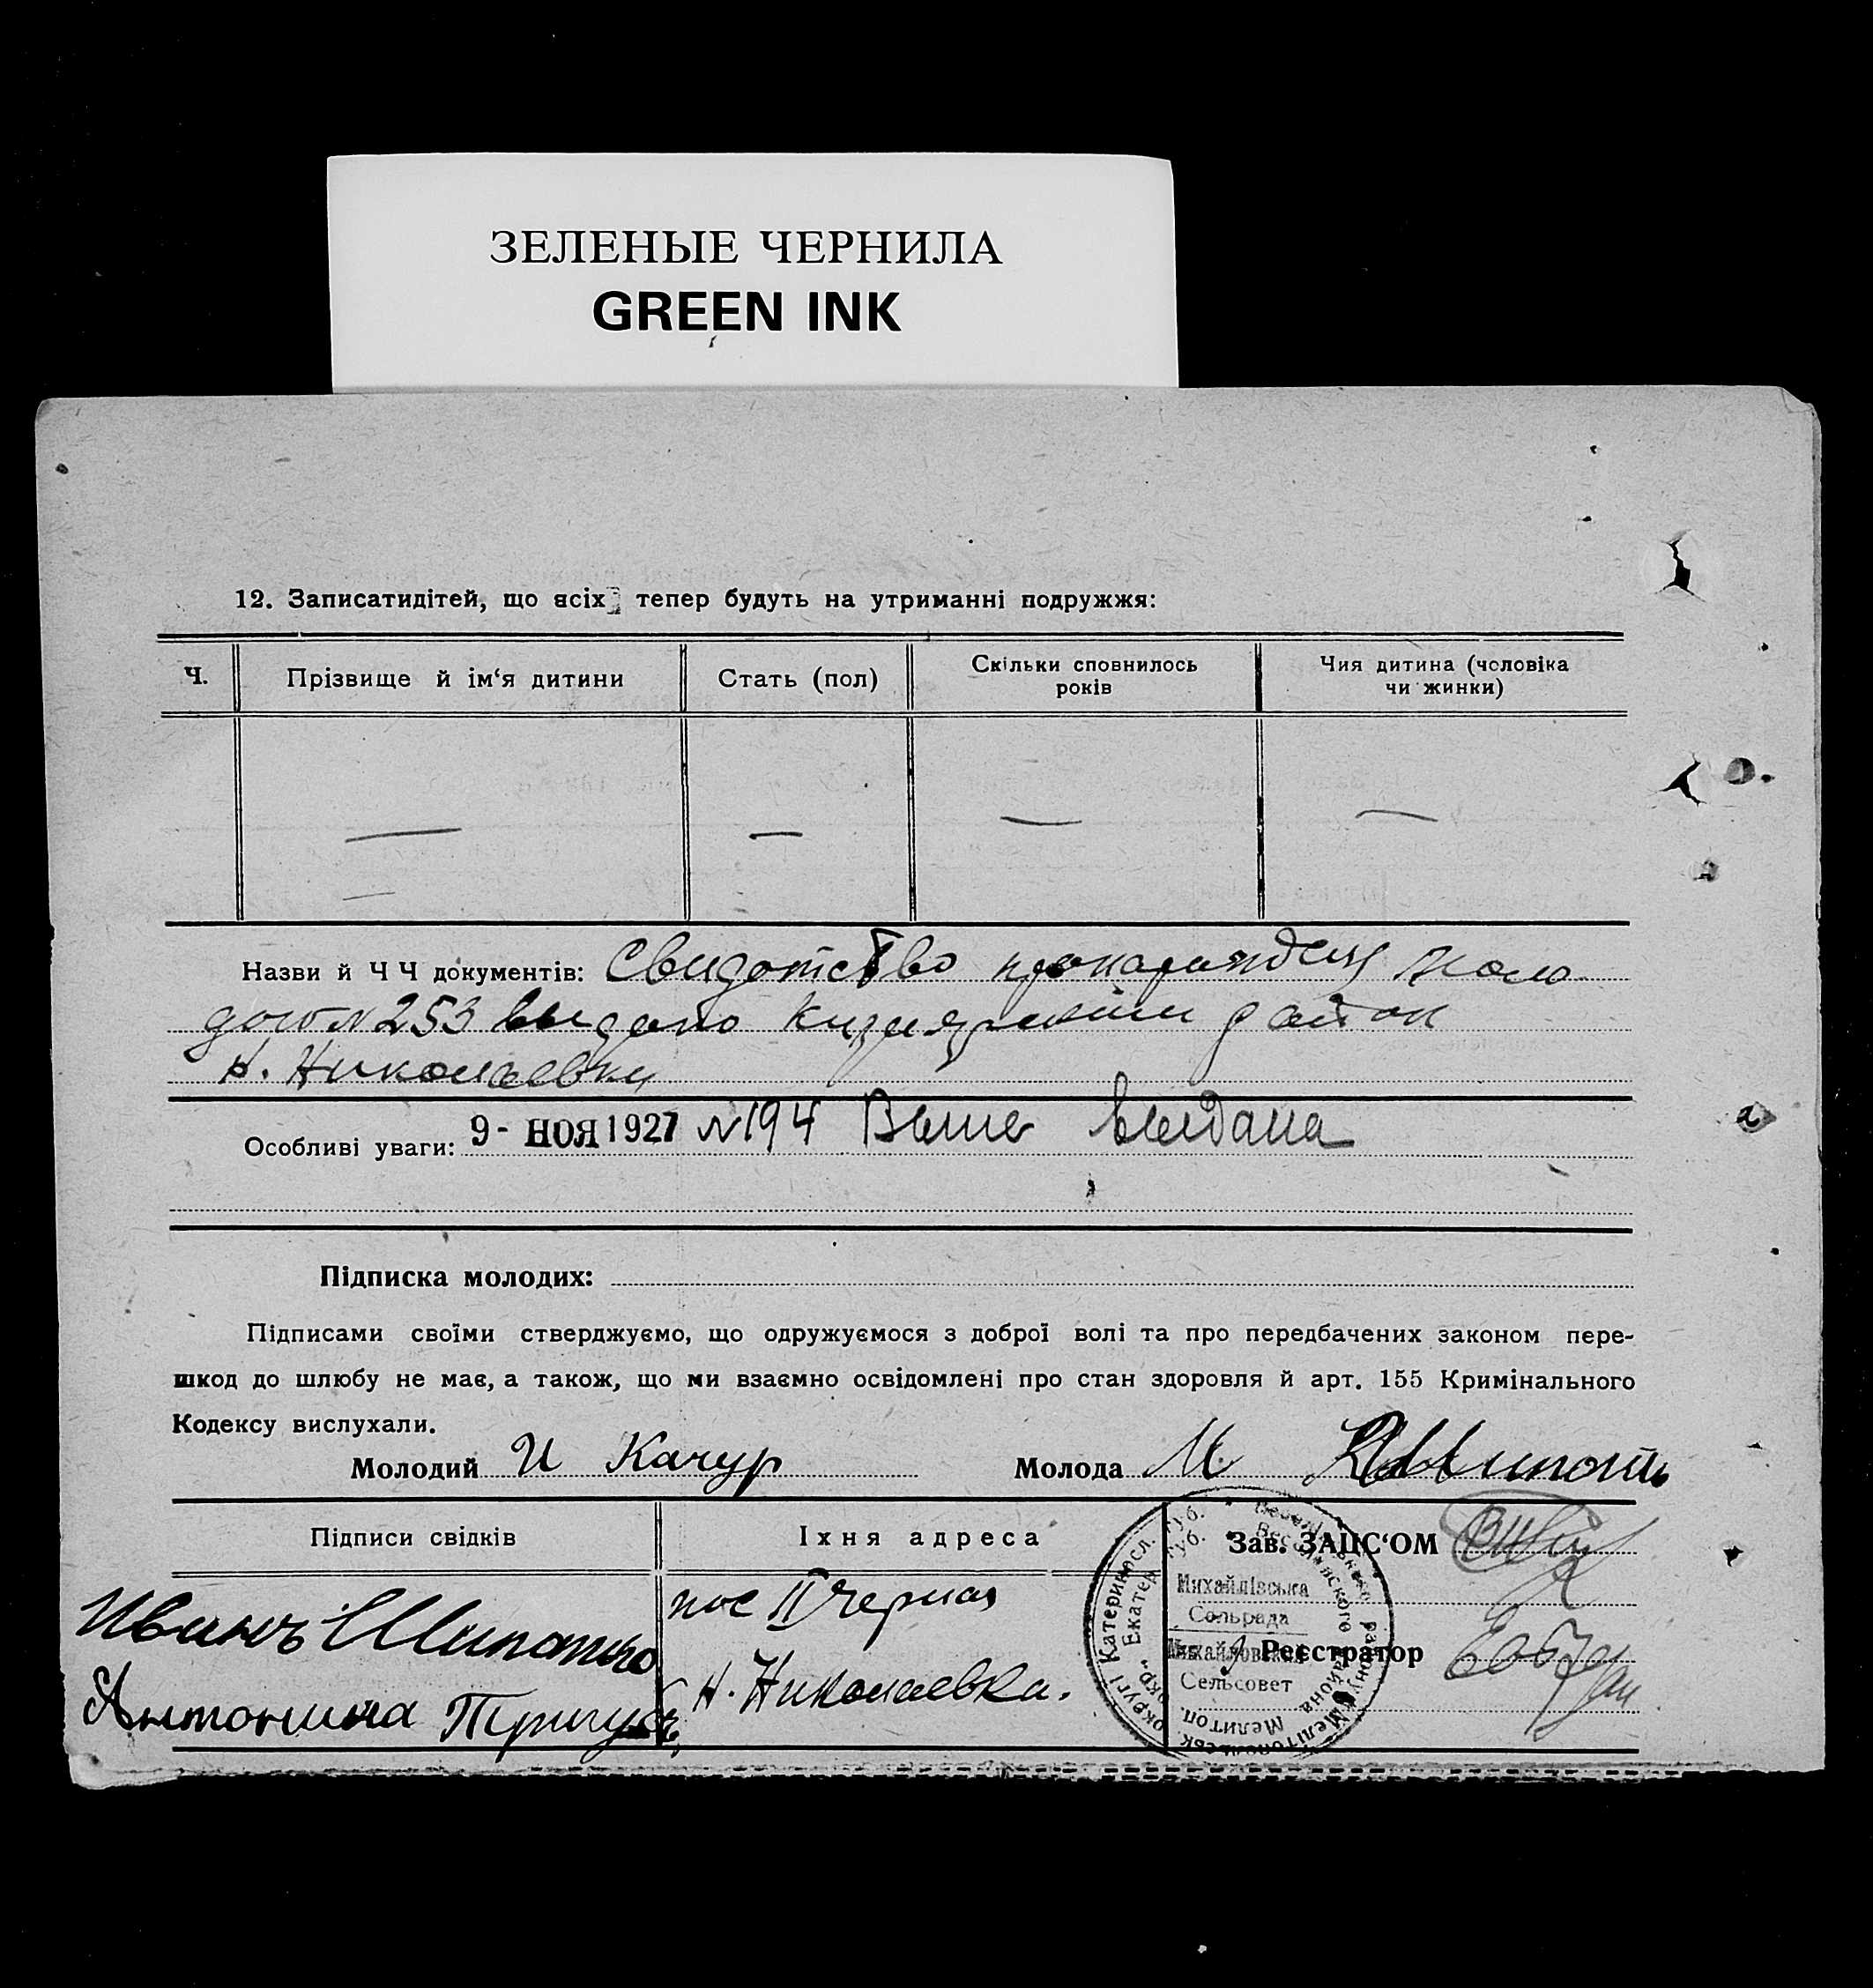 ЗЕЛЕНЫЕ ЧЕРНИЛА
GREEN INK
12. Записатидітей, що всіх тепер будуть на утриманні подружжя:
Ч.
Прізвище й ім‘я дитини
Стать (пол)
Скільки сповнилось
років
Чия дитина (чоловіка
чи жинки)
Назви й Ч Ч документів: Свидотство
№ 253 выдано
Н. Николаевки
Особливі уваги: 9- НОЯ 1927 №194 выдана
Підписка молодих:
Підписами своїми стверджуємо, що одружуємося з доброї волі та про передбачених законом пере-
шкод до шлюбу не має, а також, що ми взаємно освідомлені про стан здоровля й арт. 155 Кримінального
Кодексу вислухали.
Молодий И Качур
Молода М
Підписи свідків
Їхня адреса
Зав. ЗАЦС‘ОМ
Иванъ Шипотько
пос II Черная
Антонина Тригубъ
Н. Николаевка.
Реєстратор
Михайлівська
Сольрада
Михайловский
Сельсовет